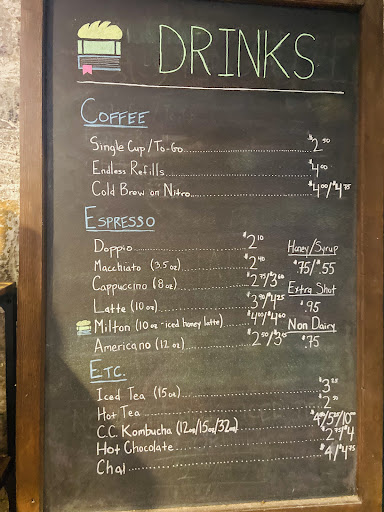 DRINKS
COFFEE
Single Cup/To-Go $2.50
Endless Refills $4.00
Cold Brew on Nitro $4.00/$4.75
ESPRESSO
Doppio $2.10
Macchiato (3.5 oz) $2.40
Cappuccino (8 oz) $2.75/$3.60
Latte (10 oz) $3.90/$4.25
Milton (10 oz - iced honey latte) $4.00/$4.60
Americano (12 oz) $2.50/$3
Honey/Syrup
$.75/$.55
Extra Shot
$.95
Non Dairy
$.75
ETC.
Iced Tea (15 oz) $3
Hot Tea $2.50
C.C. Kombucha (12oz/15oz/32oz) $4/5/10
Hot Chocolate $2.75/$4
Chai $4/$4.75